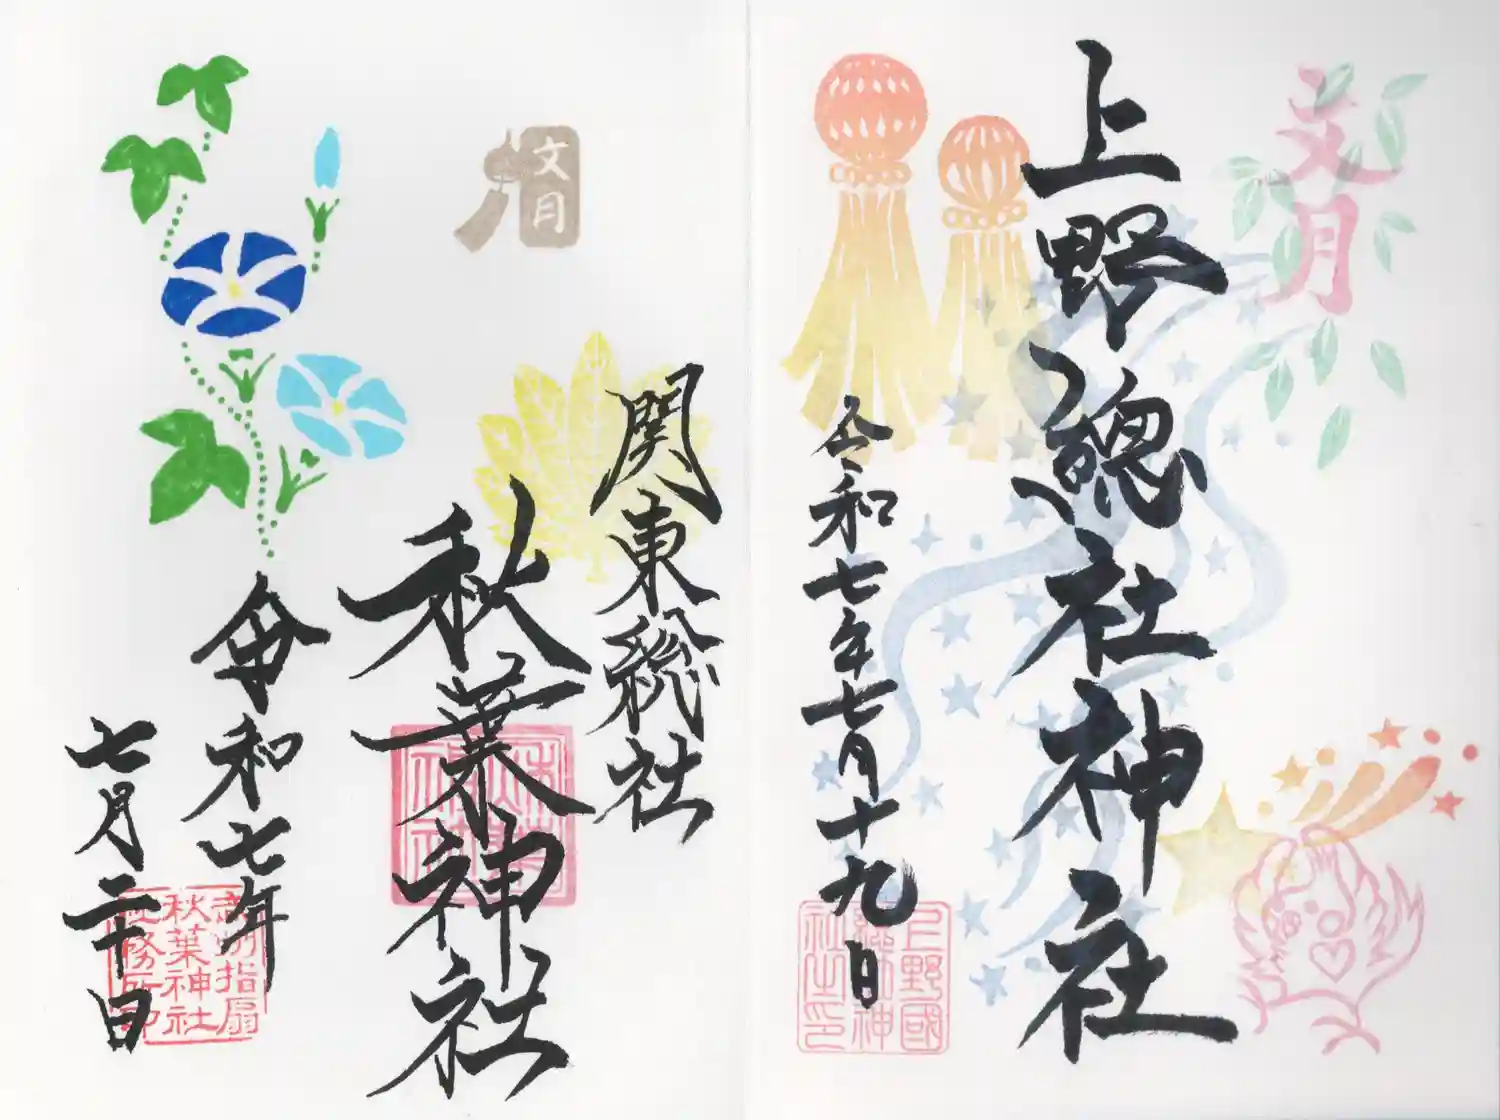 文月
上野總社神社
令和七年七月十九日
上野國総社神社之印
文月
関東総社
秋葉神社
令和七年
七月二十日
武州指扇
秋葉神社
社務所印